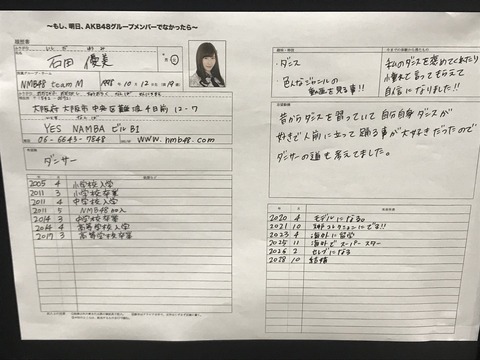 ～もし、明日、AKB48グループメンバーでなかったら～
履歴書
いしだ ゆうみ
石田 優美
所属グループ・チーム
NMB48 team M
1998年10月12日
大阪府 大阪市 中央区難波 4目前 12-7
YES NAMBA ビル B1
06-6643-7848
www.nmb48.com
ダンサー
2005 4 小学校入学
2011 3 小学校卒業
2011 4 中学校入学
2011 5 NMB48加入
2014 3 中学校卒業
2014 4 高等学校入学
2017 3 高等学校卒業
・ダンス
・色んなジャンルの
動画を見る事!!
私のダンスを褒めてくれたり
憧れと言ってもらえて
自信になりました!!
志望動機
昔からダンスを習っていて自分自身ダンスが
好きで人前に立って踊る事が大好きだったので
ダンサーの道も考えてました。
2020 4 モデルになる。
2021 10 神戸コレクションにでる!!
2023 4 海外に留学
2025 11 海外でスーパースター
2026 2 セレブになる
2028 10 結婚